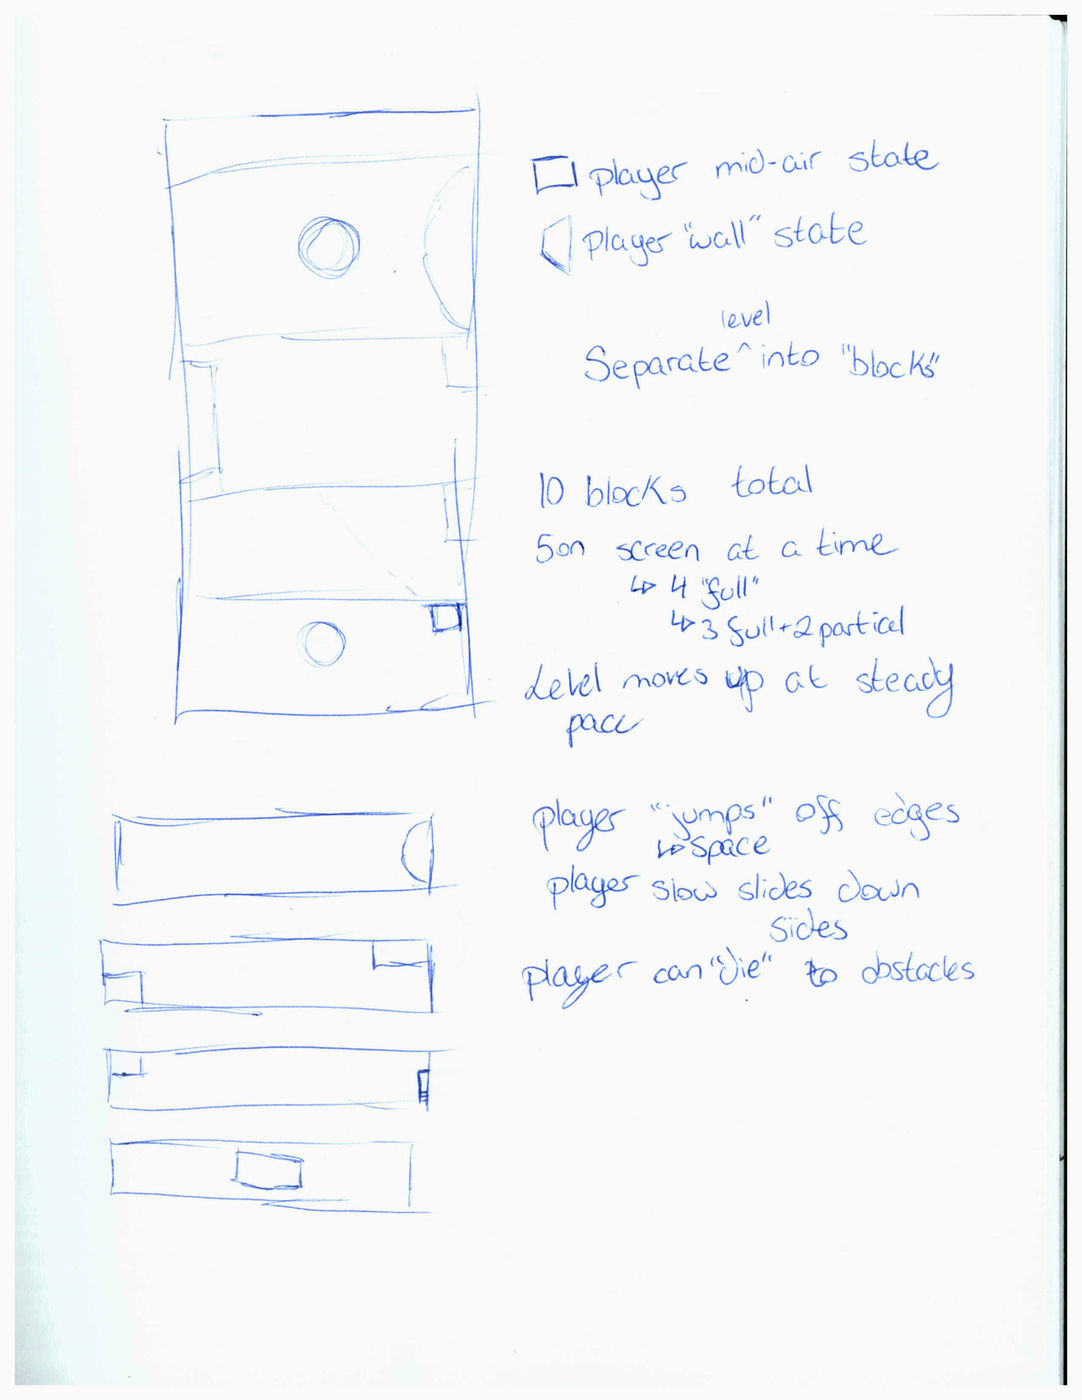 player mid-air state
player "wall" state
level
Separate ^ into "blocks"
10 blocks total
5 on screen at a time
↳ 4 "full"
↳ 3 full + 2 partial
Level moves up at steady
pace
player "jumps" off edges
↳ Space
player slow slides down
sides
player can "die" to obstacles